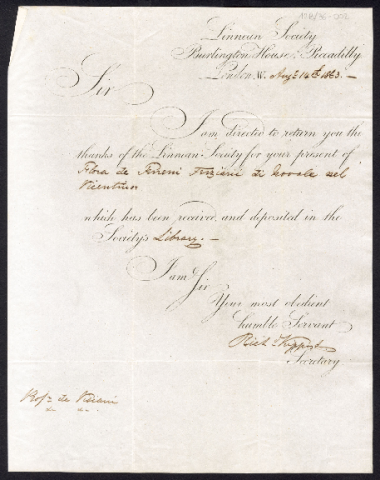 Linnean Society
Burlington House, Piccadilly
London W. Augt. 14th 1863. —
Sir
I am directed to return you the
thanks of the Linnean Society for your present of
Flora de Terreni Terziarii di Novale nel
Vicentino
which has been received and deposited in the
Society's Library. —
I am Sir
Your most obedient
humble Servant
Richd Kippist
Secretary
Rofr de Visiani